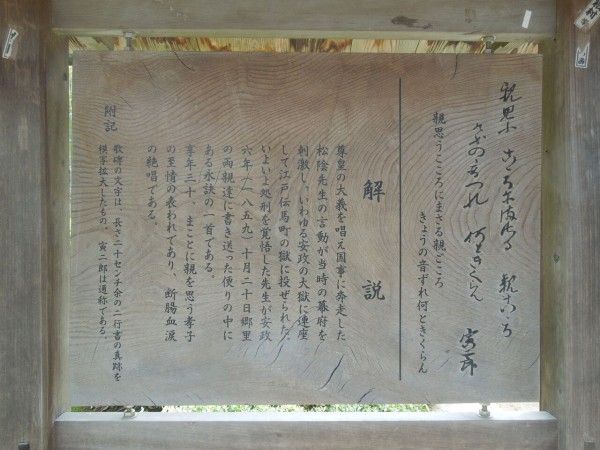 親思ふこころにまさる親こころ
けふの音つれ何ときくらん
寅二郎
親思うこころにまさる親ごころ
きょうの音ずれ何ときくらん
解説
尊皇の大義を唱え国事に奔走した
松陰先生の言動が当時の幕府を
刺激し、いわゆる安政の大獄に連座
して江戸伝馬町の獄に投ぜられた。
いよいよ処刑を覚悟した先生が安政
六年(一八五九)十月二十日郷里
の両親達に書き送った便りの中に
ある永訣の一首である。
享年三十、まことに親を思う孝子
の至情の表われであり、断腸血涙
の絶唱である。
附記
歌碑の文字は、長さ二十センチ余の二行書の真跡を
模写拡大したもの。寅二郎は通称である。